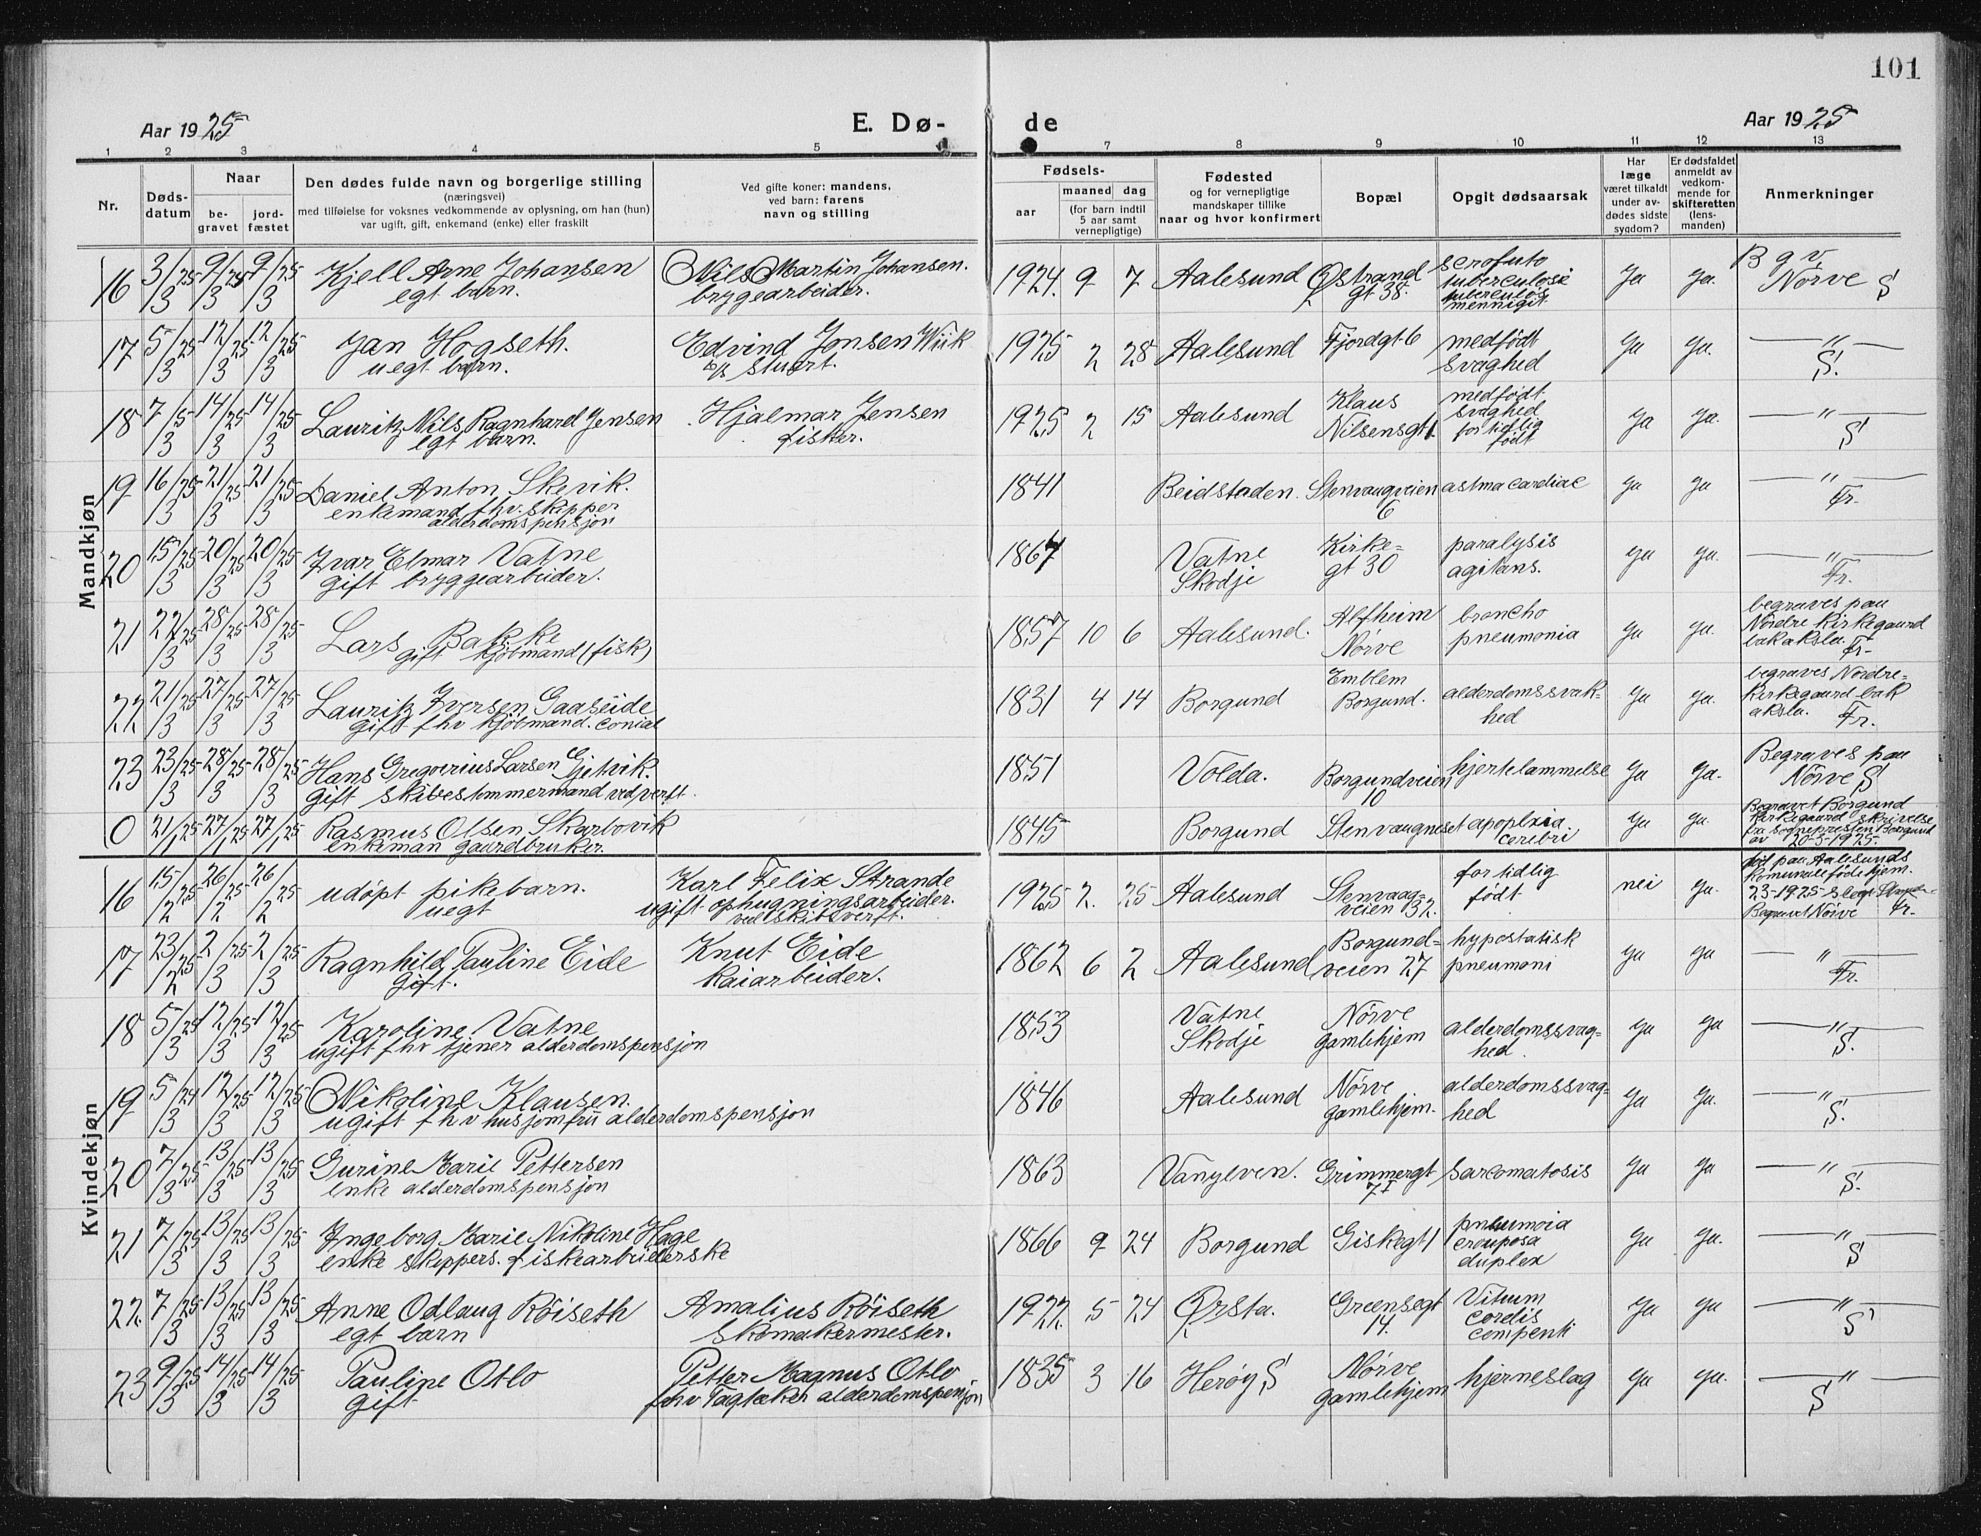 101
Aar 1925 E. Dø- de Aar 1925
1 2 3 4 5 7 8 9 10 11 12 13
Nr.
Døds-
datum
Naar
be-
gravet
jord-
fæstet
Den dødes fulde navn og borgerlige stilling
(næringsvei)
med tilføielse for voksnes vedkommende av oplysning, om han (hun)
var ugift, gift, enkemand (enke) eller fraskilt
Ved gifte koner: mandens,
ved barn: farens
navn og stilling
Fødsels-
aar
maaned dag
(for barn indtil
5 aar samt
vernepligtige)
Fødested
og for vernepligtige
mandskaper tillike
naar og hvor konfirmert
Bopæl
Opgit dødsaarsak
Har
læge
været tilkaldt
under av-
dødes sidste
sygdom?
Er dødsfaldet
anmeldt av
vedkom-
mende for
skifteretten
(lens-
manden)
Anmerkninger
Mandkjøn
16 3/3 25 9/3 25 9/3 25 Kjell Arne Johansen Nils Martin Johansen. 1924. 9 7 Aalesund Østrand scrofulo ja ja. B g v.
egt barn. bryggearbeider. gt 38. tuberculose Nørve S
tuberculøs
mennigit
17 5/3 25 12/3 25 12/3 25 Jan Hogseth. Edvind Jonsen Wiik 1925 2 28 Aalesund Fjordgt 6 medfødt ja ja. — " —
uegt barn. stuert. svaghed S.
18 7/3 5 14/3 25 14/3 25 Lauritz Nils Ragnhard Jensen Hjalmar Jensen 1925 2 15 Aalesund Klaus medfødt ja ja. — " —
egt barn. fisker. Nilsensgt 1. svaghed S
for tidlig
født
19 16/3 25 21/3 25 21/3 25 Daniel Anton Skevik. 1841 Beidstaden. Stenvaagveien astma cardiac ja ja — " —
enkemand fhv. skipper 6 Fr.
alderdomspensjon
20 15/3 25 20/3 25 20/3 25 Ivar Elmar Vatne 1867 Vatne Kirke= paralysis ja ja. — " —
gift bryggearbeider. Skodje gt 30 agitans. Fr.
21 22/3 25 28/3 25 28/3 25 Lars Bakke 1857 10 6 Aalesund. Alfheim broncho ja ja. begraves paa
gift kjøbmand (fisk) Nørve pneumonia Nordre Kirkegaard
bak aksla. Fr.
22 21/3 25 27/3 25 27/3 25 Lauritz Iversen Gaaseide 1831 4 14 Borgund Emblem alderdomssvak= ja ja. begraves Nordre-
gift fhv kjøbmand. conial Borgund. hed Kirkegaard bak
aksla. Fr.
23 23/3 25 28/3 25 28/3 25 Hans Gregoerius Larsen Gjetvik. 1851 Volda. Borgundveien hjertelammelse ja ja. Begraves paa
gift skibestømmermand ved verft. 10 Nørve S
0 21/1 25 27/1 25 27/1 25 Rasmus Olsen Skarbøvik 1845 Borgund Stenvaagneset apoplxia ja ja. Begravet Borgund
enkeman gaardbruker. cerebri Kirkegaard skrivelse
fra sognepresten Borgund
av 20-3-1925.
Kvindekjøn
16 15/2 25 26/2 25 26/2 25 udøpt pikebarn. Karl Felix Strande 1925 2. 25 Aalesund Stenvaag for tidlig nei ja. født paa Aalesunds
uegt ugift ophugningsarbeider. veien 132. født Komunale fødehjem.
ved skibsverft. Begravet Nørve Fr.
17 23/2 25 2/3 25 2/3 25 Ragnhild Pauline Eide Knut Eide 1862 6 2 Aalesund Borgund= hypostatisk ja ja — " —
Gift. Kaiarbeider. veien 27 pneumoni Fr.
18 5/3 25 12/3 25 12/3 25 Karoline Vatne 1853 Vatne Nørve alderdomssvag= ja ja — " —
ugift fhv tjener alderdomspensjon Skodje gamlehjem hed. S.
19 5/3 24 12/3 25 12/3 25 Nikoline Klausen. 1846 Aalesund Nørve alderdomssvag= ja ja. — " —
ugift fhv husjomfru alderdomspensjon gamlehjem. hed S.
20 7/3 25 13/3 25 13/3 25 Gurine Marie Pettersen 1863 Vanylven. Grimmergt sarcomatosis ja ja — " —
enke alderdomspensjon 7I S.
21 7/3 25 13/3 25 13/3 25 Ingeborg Marie Nikoline Hage 1866 9 24 Borgund Giskegt 1 pneumoia ja ja. — " —
enke skippers. fiskearbeiderske crouposa S
duplex
22. 7/3 25 13/3 25 13/3 25 Anne Odlaug Røiseth Amalius Røiseth 1922. 5 24 Ørsta. Greensegt Vitium ja ja — " —
egt barn skomakermester. 14. cordis S
compenti
23 9/3 25 14/3 25 14/3 25 Pauline Otlo Petter Magnus Otlo 1835 3 16 Herøy S Nørve hjerneslag ja ja. — " —
gift fhv Tagtæker alderdomspensjon gamlehjem S